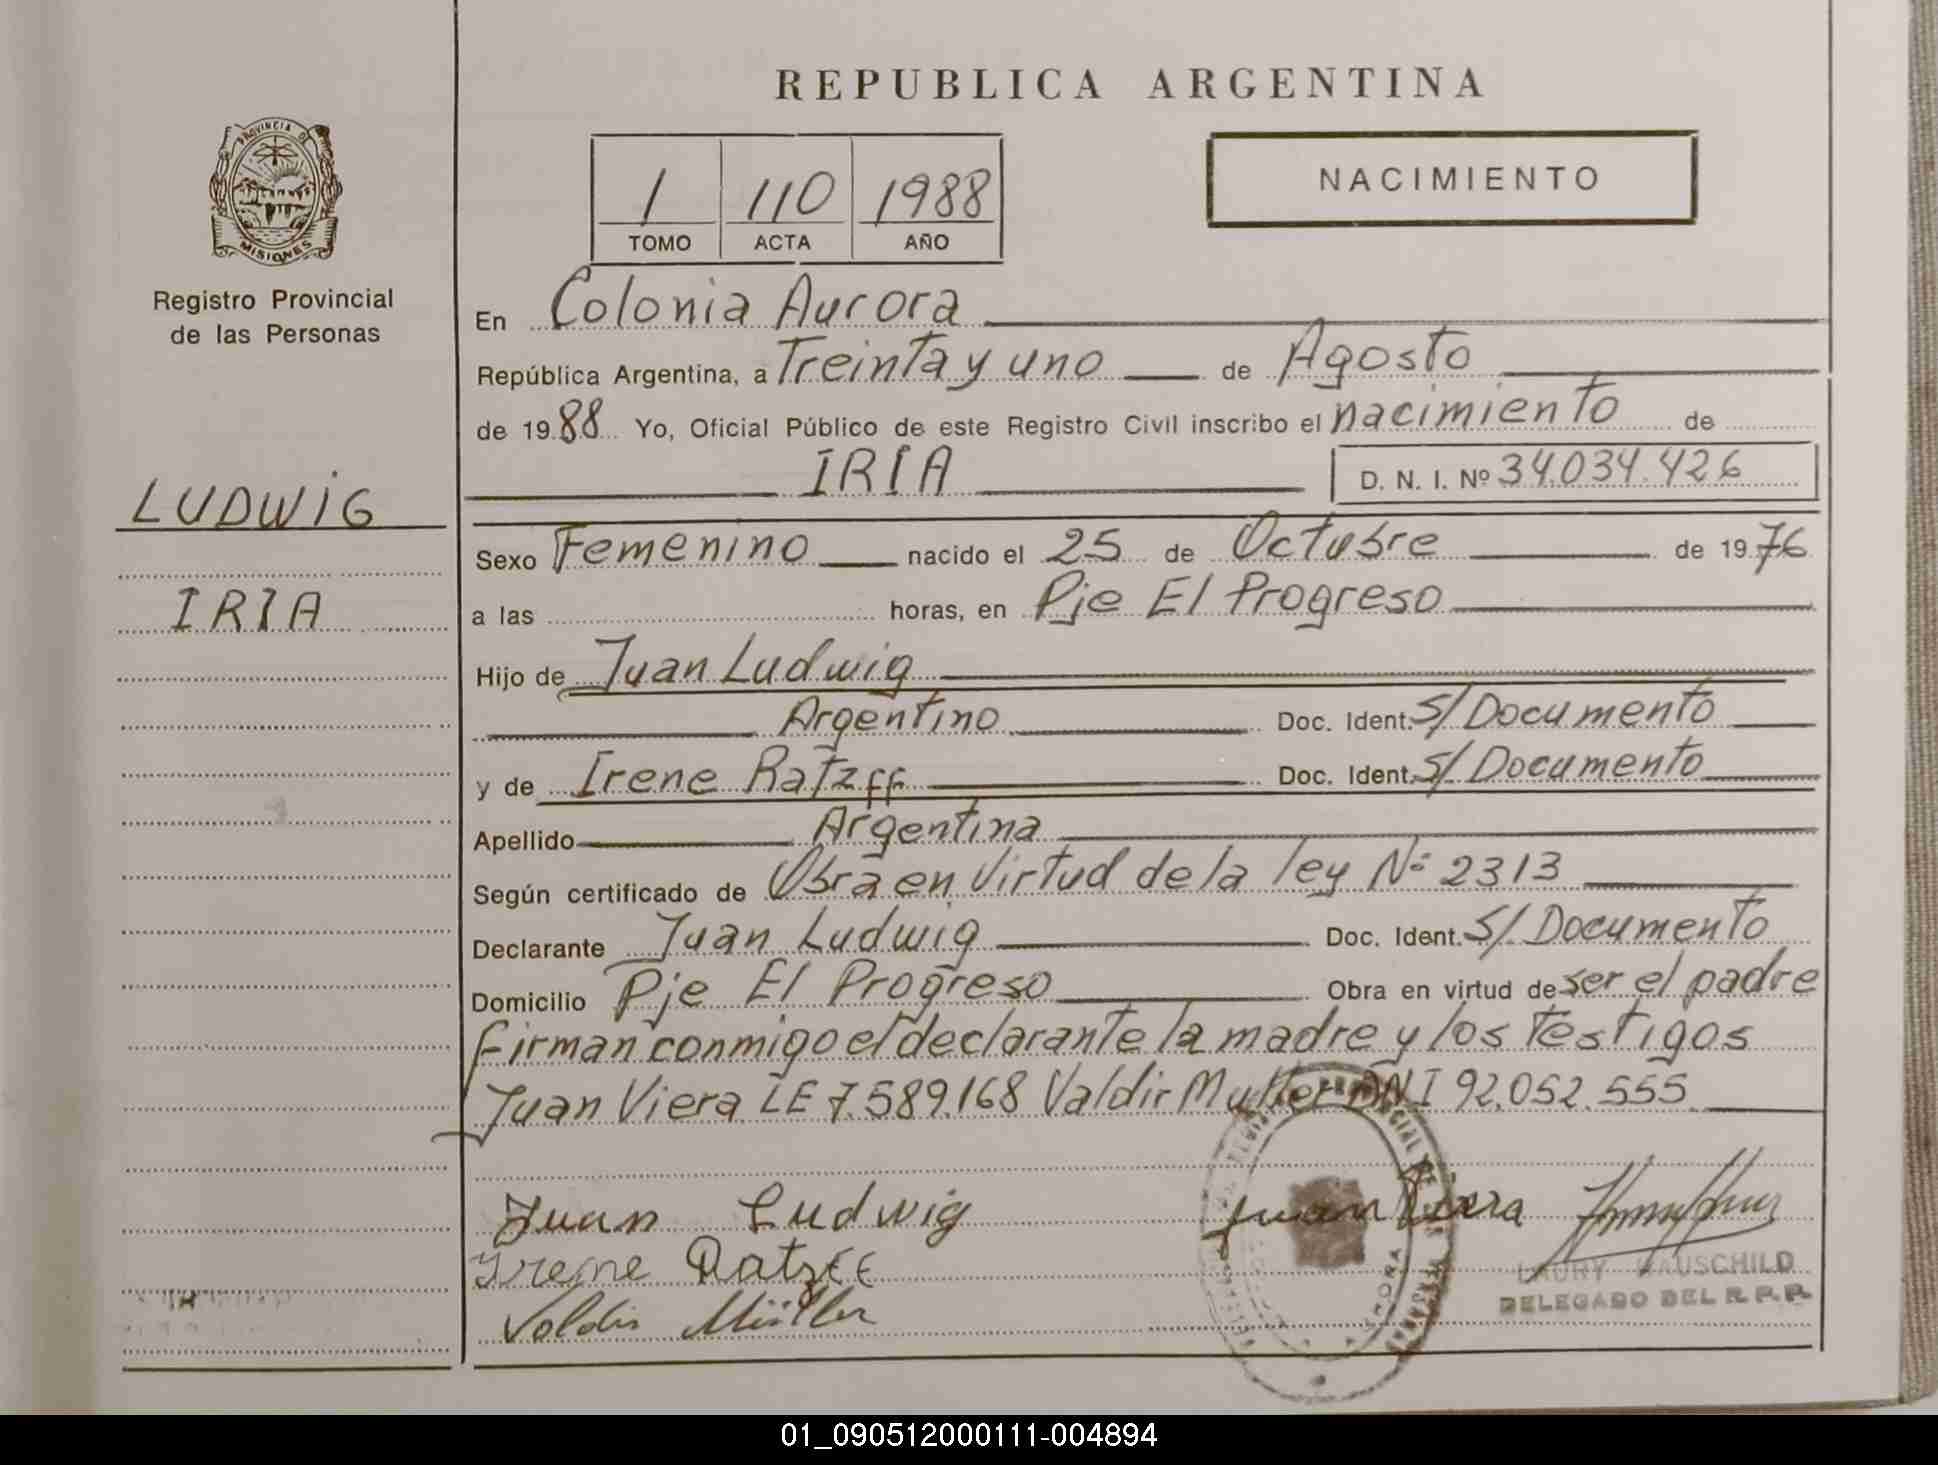 REPUBLICA ARGENTINA
PROVINCIA DE
MISIONES
Registro Provincial
de las Personas
1 110 1988
TOMO ACTA AÑO
NACIMIENTO
LUDWIG
IRIA
En Colonia Aurora
República Argentina, a Treinta y uno de Agosto
de 1988 Yo, Oficial Público de este Registro Civil inscribo el nacimiento de
IRIA D. N. I. Nº 34.034.426
Sexo Femenino nacido el 25 de Octubre de 1976
a las horas, en Pje El Progreso
Hijo de Juan Ludwig
Argentino Doc. Ident. S/ Documento
y de Irene Ratzff Doc. Ident. S/ Documento
Apellido Argentina
Según certificado de Obra en Virtud de la ley Nº 2313
Declarante Juan Ludwig Doc. Ident. S/ Documento
Domicilio Pje El Progreso Obra en virtud de ser el padre
firman conmigo el declarante la madre y los testigos
Juan Viera LE 7.589.168 Valdir Muller DNI 92.052.555
Juan Ludwig Juan Viera
Irene Ratzff
Valdir Müller
LAURY HAUSCHILD
DELEGADO DEL R.P.P.
01_090512000111-004894